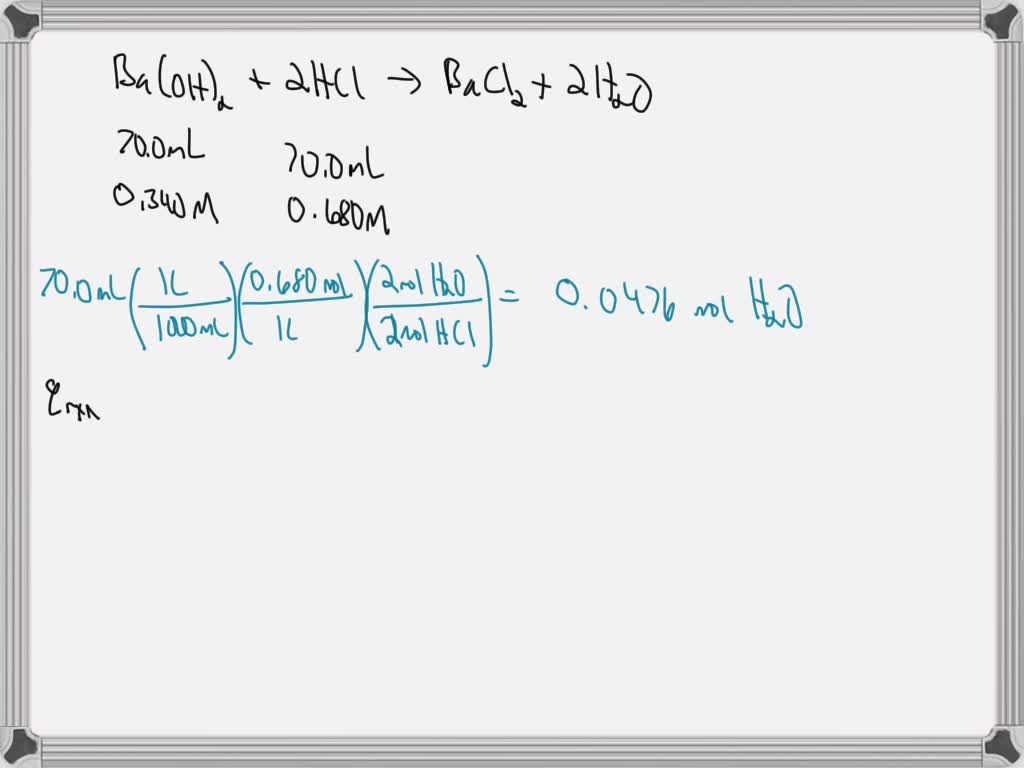 Ba(OH)₂ + 2HCl → BaCl₂ + 2H₂O
70.0mL 70.0mL
0.340M 0.680M
70.0mL (1L/1000mL)(0.680mol/1L)(2mol H₂O/2mol HCl) = 0.0476 mol H₂O
qrxn